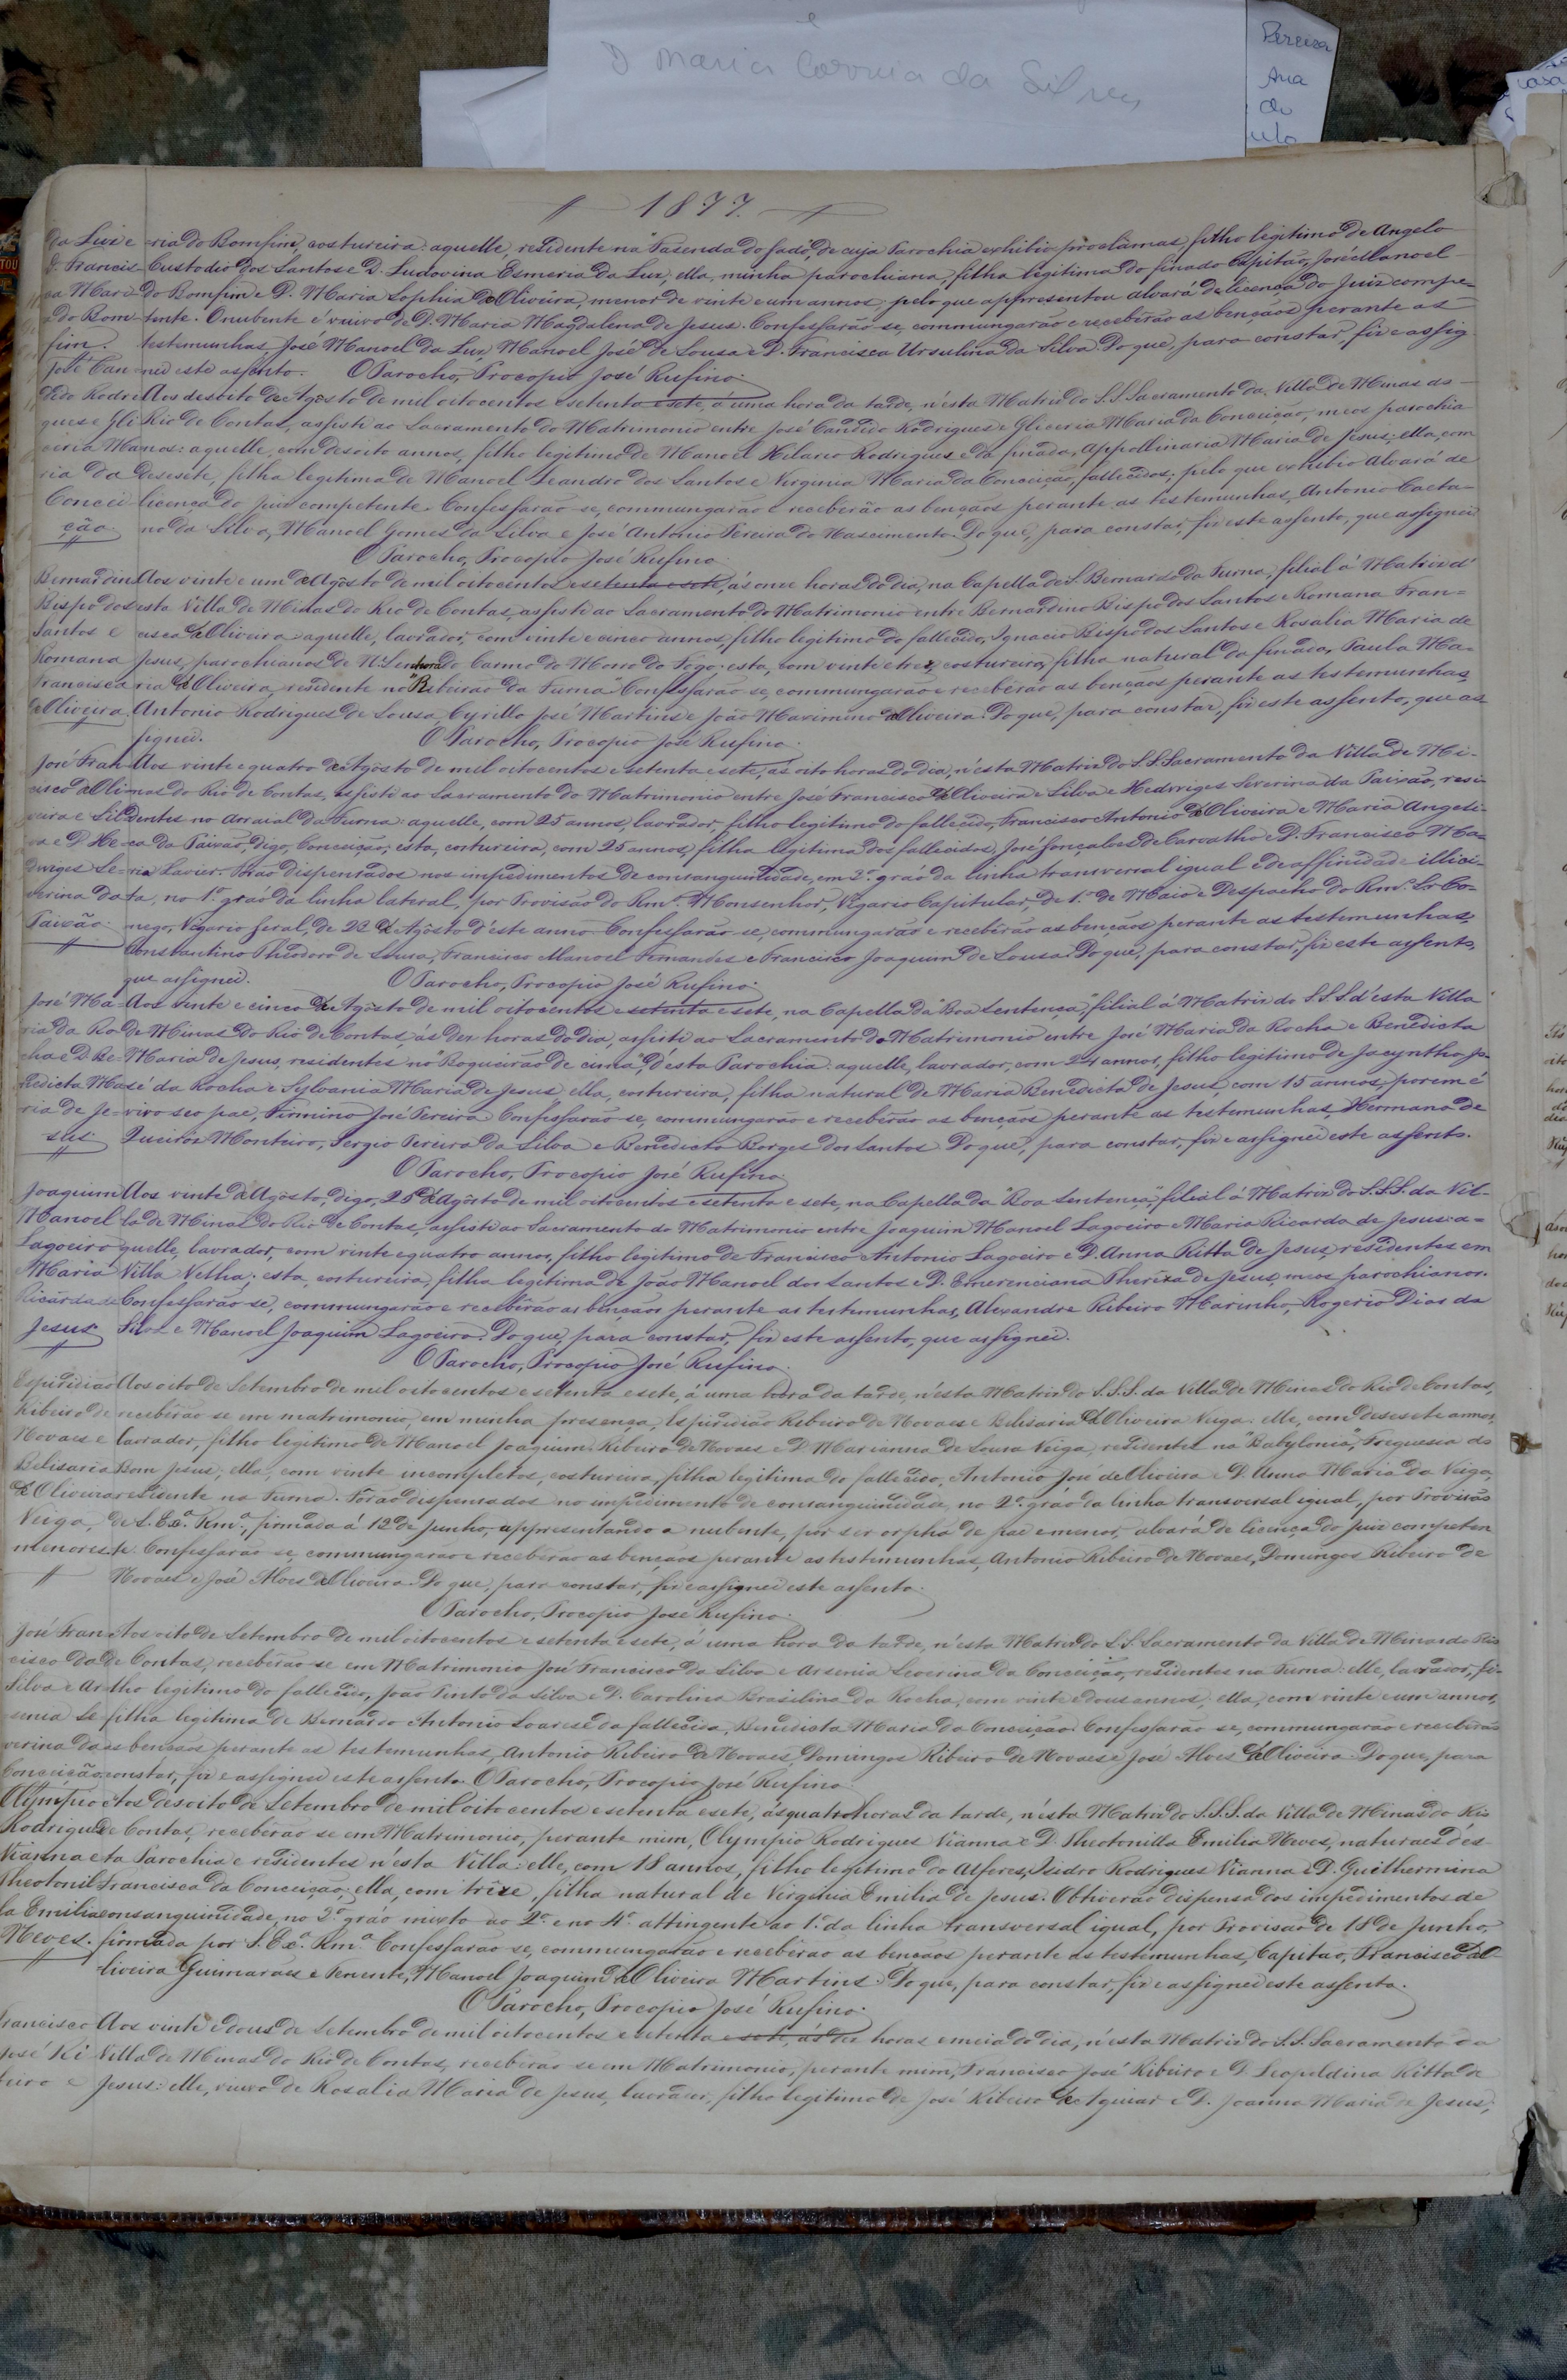 D Maria Correia da Silva
Pereira
Ana
do
1877.
da Luz e -ria do Bomfim, costureira: aquelle, residente na "Fasenda do fado", de cuja Parochia exhibio proclamas, filho legitimo de Angelo
D. Francis- Custodio dos Santos e D. Ludovina Esmeria da Luz; ella, minha parochiana, filha legitima do finado Capitão, José Manoel
ca Mari- do Bomfim e D. Maria Sophia de Oliveira, menor de vinte e um annos, pelo que appresentou alvará de licença do Juiz compe-
a do Bom- tente. O nubente é viuvo de D. Maria Magdalena de Jesus. Confessarão-se, commungarão e receberão as bençãos perante as
fim. testemunhas, José Manoel da Luz, Manoel José de Sousa e D. Francisca Ursulina da Silva. Do que, para constar, fiz e assig
José Can- nei este assento. O Parocho, Procopio José Rufino.
dido Rodri Aos desoito de Agôsto de mil oitocentos e setenta e sete, á uma hora da tarde, n'esta Matriz do S.S. Sacramento da Villa de Minas do
gues e Gli Rio de Contas, assisti ao Sacramento do Matrimonio entre José Candido Rodrigues e Gliceria Maria da Conceição, meos parochia
ceria Ma nos: aquelle, com desoito annos, filho legitimo de Manoel Hilario Rodrigues e da finada, Appollinaria Maria de Jesus; ella, com
ria da Desesete, filha legitima de Manoel Leandro dos Santos e Virginia Maria da Conceição, fallecidos; pelo que exhibio Alvará de
Concei licença do Juiz competente. Confessarão-se, commungarão e receberão as bençãos perante as testemunhas, Antonio Caeta-
ção no da Silva, Manoel Gomes da Silva e José Antonio Pereira do Nascimento. Do que, para constar, fiz este assento, que assignei
O Parocho, Procopio José Rufino
Bernardino Aos vinte e um de Agôsto de mil oitocentos e setenta e sete, ás onze horas do dia, na Capella de S. Bernardo da Furna, filial á Matriz d'
Bispo dos esta Villa de Minas do Rio de Contas, assisti ao Sacramento do Matrimonio entre Bernardino Bispo dos Santos e Romana Fran=
Santos e cisca de Oliveira: aquelle, lavrador, com vinte e cinco annos, filho legitimo do fallecido, Ignacio Bispo dos Santos e Rosalia Maria de
Romana Jesus, parochianos de N. Senhora do Carmo do Morro do Fogo; esta, com vinte e tres, costureira, filha natural da finada, Paula Ma-
Francisca ria de Oliveira, residente no "Ribeirão da Furna". Confessarão-se, commungarão e receberão as bençaos perante as testemunhas,
de Oliveira. Antonio Rodrigues de Sousa, Cyrillo José Martins e João Maximino de Oliveira. Do que, para constar, fiz este assento, que as
signei. O Parocho, Procopio José Rufino.
José Fran- Aos vinte e quatro de Agôsto de mil oitocentos e setenta e sete, ás oito horas do dia, n'esta Matriz do S.S. Sacramento da Villa de Mi-
cisco de Oli nas do Rio de Contas, assisti ao Sacramento do Matrimonio entre José Francisco de Oliveira e Silva e Hedwiges Severina da Paixão, resi-
veira e Sil dentes no Arraial da Furna: aquelle, com 25 annos, lavrador, filho legitimo do fallecido, Francisco Antonio de Oliveira e Maria Angeli-
va e D. He- ca da Paixão, digo, Conceição; esta, costureira, com 25 annos, filha legitima dos fallecidos, José Gonçalves de Carvalho e D. Francisca Ma-
dwiges Se- ria Xavier. Forão dispensados nos impedimentos de consanguinidade, em 3º grao da linha transversal igual e de affinidade illici-
verina da ta, no 1º grao da linha lateral, por Provisão do Rmº. Monsenhor, Vigario Capitular, de 1º de Maio e Despacho do Rmº. Sr. Co-
Paixão nego, Vigario Geral, de 23 de Agôsto d'este anno. Confessarão-se, commungarão e receberão as bençaos perante as testemunhas,
Constantino Theodoro de Sousa, Francisco Manoel Fernandes e Francisco Joaquim de Sousa. Do que, para constar, fiz este assento,
que assignei. O Parocho, Procopio José Rufino.
José Ma- Aos vinte e cinco de Agôsto de mil oitocentos e setenta e sete, na Capella da "Boa Sentença", filial á Matriz do S.S.S. d'esta Villa
ria da Ro de Minas do Rio de Contas, ás dez horas do dia, assisti ao Sacramento do Matrimonio entre José Maria da Rocha e Benedicta
cha e D. Be- Maria de Jesus, residentes no "Boqueirão de cima", d'esta Parochia: aquelle, lavrador, com 24 annos, filho legitimo de Jacyntho Jo-
nedicta Ma sé da Rocha e Sylvania Maria de Jesus; ella, costureira, filha natural de Maria Benedicta de Jesus, com 15 annos, porem é
ria de Je- vivo seo pae, Firmino José Pereira. Confessarão-se, commungarão e receberão as bençãos perante as testemunhas, Hermano de
sus Queiros Monteiro, Sergio Pereira da Silva e Benedicto Borges dos Santos. Do que, para constar, fiz e assignei este assento.
O Parocho, Procopio José Rufino
Joaquim Aos vinte de Agôsto, digo, 25 de Agôsto de mil oitocentos e setenta e sete, na Capella da "Boa Sentença", filial á Matriz do S.S.S. da Vil-
Manoel la de Minas do Rio de Contas, assisti ao Sacramento do Matrimonio entre Joaquim Manoel Lagoeiro e Maria Ricarda de Jesus: a=
Lagoeiro quelle, lavrador, com vinte e quatro annos, filho legitimo de Francisco Antonio Lagoeiro e D. Anna Ritta de Jesus, residentes em
Maria Villa Velha; esta, costureira, filha legitima de João Manoel dos Santos e D. Emerenciana Thereza de Jesus, meos parochianos.
Ricarda de Confessarão-se, commungarão e receberão as bençãos perante as testemunhas, Alexandre Ribeiro Marinho, Rogerio Dias da
Jesus Silva e Manoel Joaquim Lagoeiro. Do que, para constar, fiz este assento, que assignei.
O Parocho, Procopio José Rufino.
Espiridião Aos oito de Setembro de mil oitocentos e setenta e sete, á uma hora da tarde, n'esta Matriz do S.S.S. da Villa de Minas do Rio de Contas,
Ribeiro de receberão-se em matrimonio, em minha presença, Espiridião Ribeiro de Novaes e Belisaria de Oliveira Veiga: elle, com desesete annos,
Novaes e lavrador, filho legitimo de Manoel Joaquim Ribeiro de Novaes e D. Marianna de Sousa Veiga, residente na "Babylonia", Freguesia do
Belisaria Bom Jesus; ella, com vinte incompletos, costureira, filha legitima do fallecido, Antonio José de Oliveira e D. Anna Maria da Veiga,
de Oliveira residente na Furna. Forão dispensados no impedimento de consanguinidade, no 2º. gráo da linha transversal igual, por Provisão
Veiga, de S. Exª. Rmª., firmada á 12 de Junho, appresentando a nubente, por ser orphã de pae e menor, alvará de licença do Juiz competen
menores. te. Confessarão-se, commungarão e receberão as bençãos perante as testemunhas, Antonio Ribeiro de Novaes, Domingos Ribeiro de
Novaes e José Alves de Oliveira. Do que, para constar, fiz e assignei este assento.
O Parocho, Procopio José Rufino.
José Fran Aos oito de Setembro de mil oitocentos e setenta e sete, á uma hora da tarde, n'esta Matriz do S.S. Sacramento da Villa de Minas do Rio
cisco da de Contas, receberão-se em Matrimonio José Francisco da Silva e Arsenia Severina da Conceição, residentes na Furna: elle, lavrador, fi-
Silva e Ar- lho legitimo do fallecido, João Pinto da Silva e D. Carolina Brasilina da Rocha, com vinte e dous annos; ella, com vinte e um annos,
senia Se- filha legitima de Bernardo Antonio Soares e da fallecida, Benedicta Maria da Conceição. Confessarão-se, commungarão e receberão
verina da as bençaos perante as testemunhas, Antonio Ribeiro de Novaes, Domingos Ribeiro de Novaes e José Alves de Oliveira. Do que, para
Conceição constar, fiz e assignei este assento. O Parocho, Procopio José Rufino
Olympio Aos desoito de Setembro de mil oitocentos e setenta e sete, ás quatro horas da tarde, n'esta Matriz do S.S.S. da Villa de Minas do Rio
Rodrigues de Contas, receberão-se em Matrimonio, perante mim, Olympio Rodrigues Vianna e D. Theotonilla Emilia Neves, naturaes d'es-
Vianna e ta Parochia e residentes n'esta Villa: elle, com 18 annos, filho legitimo do Alferes, Isidro Rodrigues Vianna e D. Guilhermina
Theotonil Francisca da Conceição; ella, com trêze, filha natural de Virginia Emilia de Jesus. Obtiverão dispensa dos impedimentos de
la Emilia consanguinidade, no 3º. gráo mixto ao 2º. e no 4º. attingente ao 1º. da linha transversal igual, por Provisão de 18 de Junho,
Neves. firmada por S. Exª. Rmª. Confessarão-se, commungarão e receberão as bençaos perante as testemunhas, Capitão, Francisco de O-
liveira Guimarães e Tenente, Manoel Joaquim de Oliveira Martins. Do que, para constar, fiz e assignei este assento.
O Parocho, Procopio José Rufino.
Francisco Aos vinte e dous de Setembro de mil oitocentos e setenta e sete, ás dez horas e meia do dia, n'esta Matriz do S.S. Sacramento da
José Ri Villa de Minas do Rio de Contas, receberão-se em Matrimonio, perante mim, Francisco José Ribeiro e D. Leopoldina Ritta de
beiro e Jesus: elle, viuvo de Rosalia Maria de Jesus, lavrador, filho legitimo de José Ribeiro de Aguiar e D. Joanna Maria de Jesus;